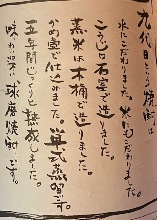 九代目という焼酎は
水にこだわりました。米にもこだわりました。
こうじは石室で造りました。
蒸米は木桶で造りました。
かめ壷で仕込みました。単式蒸留一筋です。
五年間じっくりと熟成しました。
味わい深い球磨焼酎です。